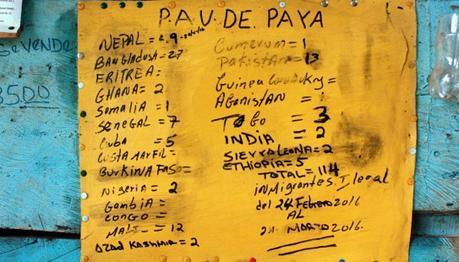 P.A.U. DE. PAYA
Se Vende
3500
NEPAL =
BANgladesh = 27
ERITREA =
GHANA = 2
Somalia = 1
SeNegal = 7
Cuba = 5
COSTA MARFIL =
BurKiNA FASO =
Nigeria = 2
Gambia =
CONGO =
MALI = 12
AZAD KASHMIR = 2
Camerum = 1
PaKistan = 13
Guinea
Afganistan = 1
TOGO = 3
INDIA = 2
SIERRA LEONA = 2
ETHIOPIA = 5
TOTAL = 114
INMigrantes. Ilegal
del 24 Febrero 2016
AL
MARZO 2016.